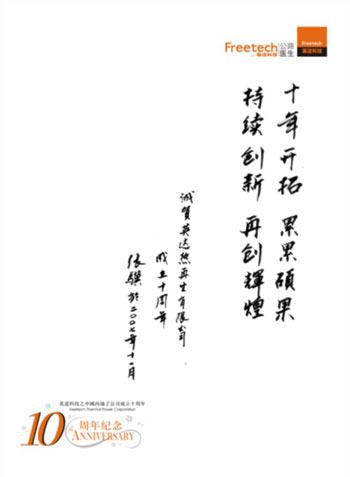 Freetech 公路
英达科技 医生
Freetech
英达科技
十年开拓 累累硕果
持续创新 再创辉煌
诚贺英达热再生有限公司
成立十周年
张骥 於二〇〇七年十一月
英達科技之中國内地子公司成立十周年
Freetech Thermal Power Corporation
10 周年紀念
ANNIVERSARY